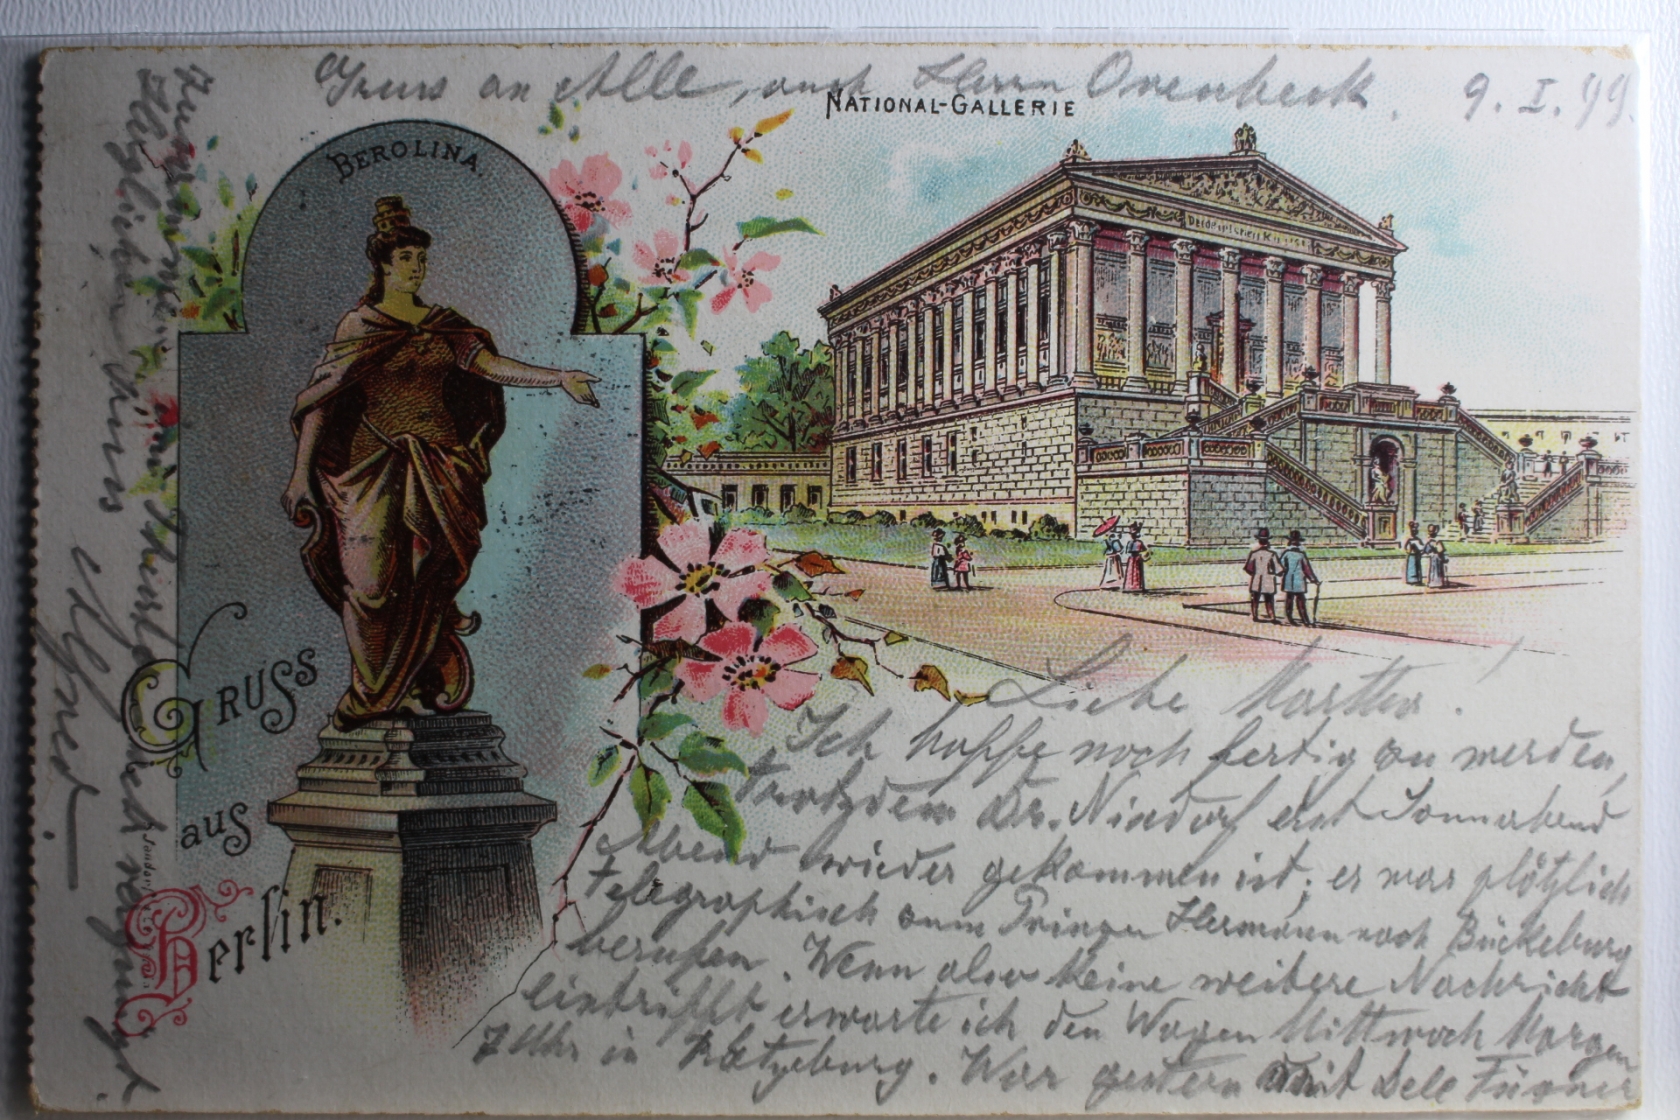 Gruss an Alle, auch Herrn Ovenbeck. 9. I. 99.
NATIONAL-GALLERIE
BEROLINA.
Der deutschen Kunst
GRUSS
aus
Berlin.
Liebe Martha!
Ich hoffe noch fertig zu werden,
trotzdem Dr. Niedorf erst Sonnabend
Abend wieder gekommen ist; er war plötzlich
telegraphisch zum Prinzen Hermann nach Bückeburg
berufen. Wenn also keine weitere Nachricht
eintrifft erwarte ich den Wagen Mittwoch Morgen
7 Uhr in Ratzeburg. War gestern mit Dele
Herzlichen Gruss
Alfred